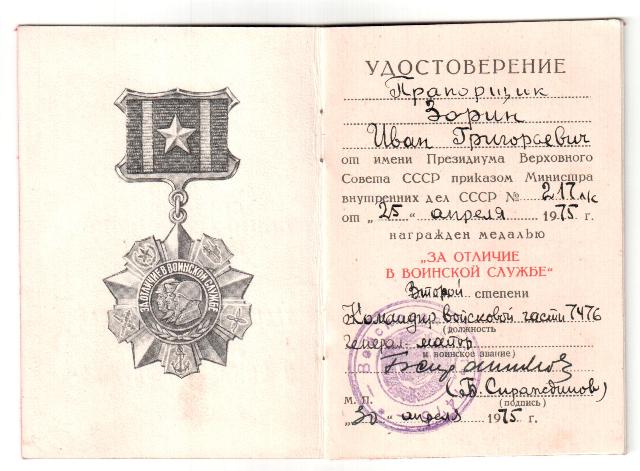 ЗА ОТЛИЧИЕ В ВОИНСКОЙ СЛУЖБЕ
УДОСТОВЕРЕНИЕ
Прапорщик
Зорин
Иван Григорьевич
от имени Президиума Верховного
Совета СССР приказом Министра
внутренних дел СССР № 217 л/с
от „25" апреля 1975 г.
награжден медалью
„ЗА ОТЛИЧИЕ
В ВОИНСКОЙ СЛУЖБЕ"
Второй степени
Командир войсковой части 7476
(должность
Генерал майор
и воинское звание)
(Б. Сиражединов)
М. П. (подпись)
„30" апреля 1975 г.